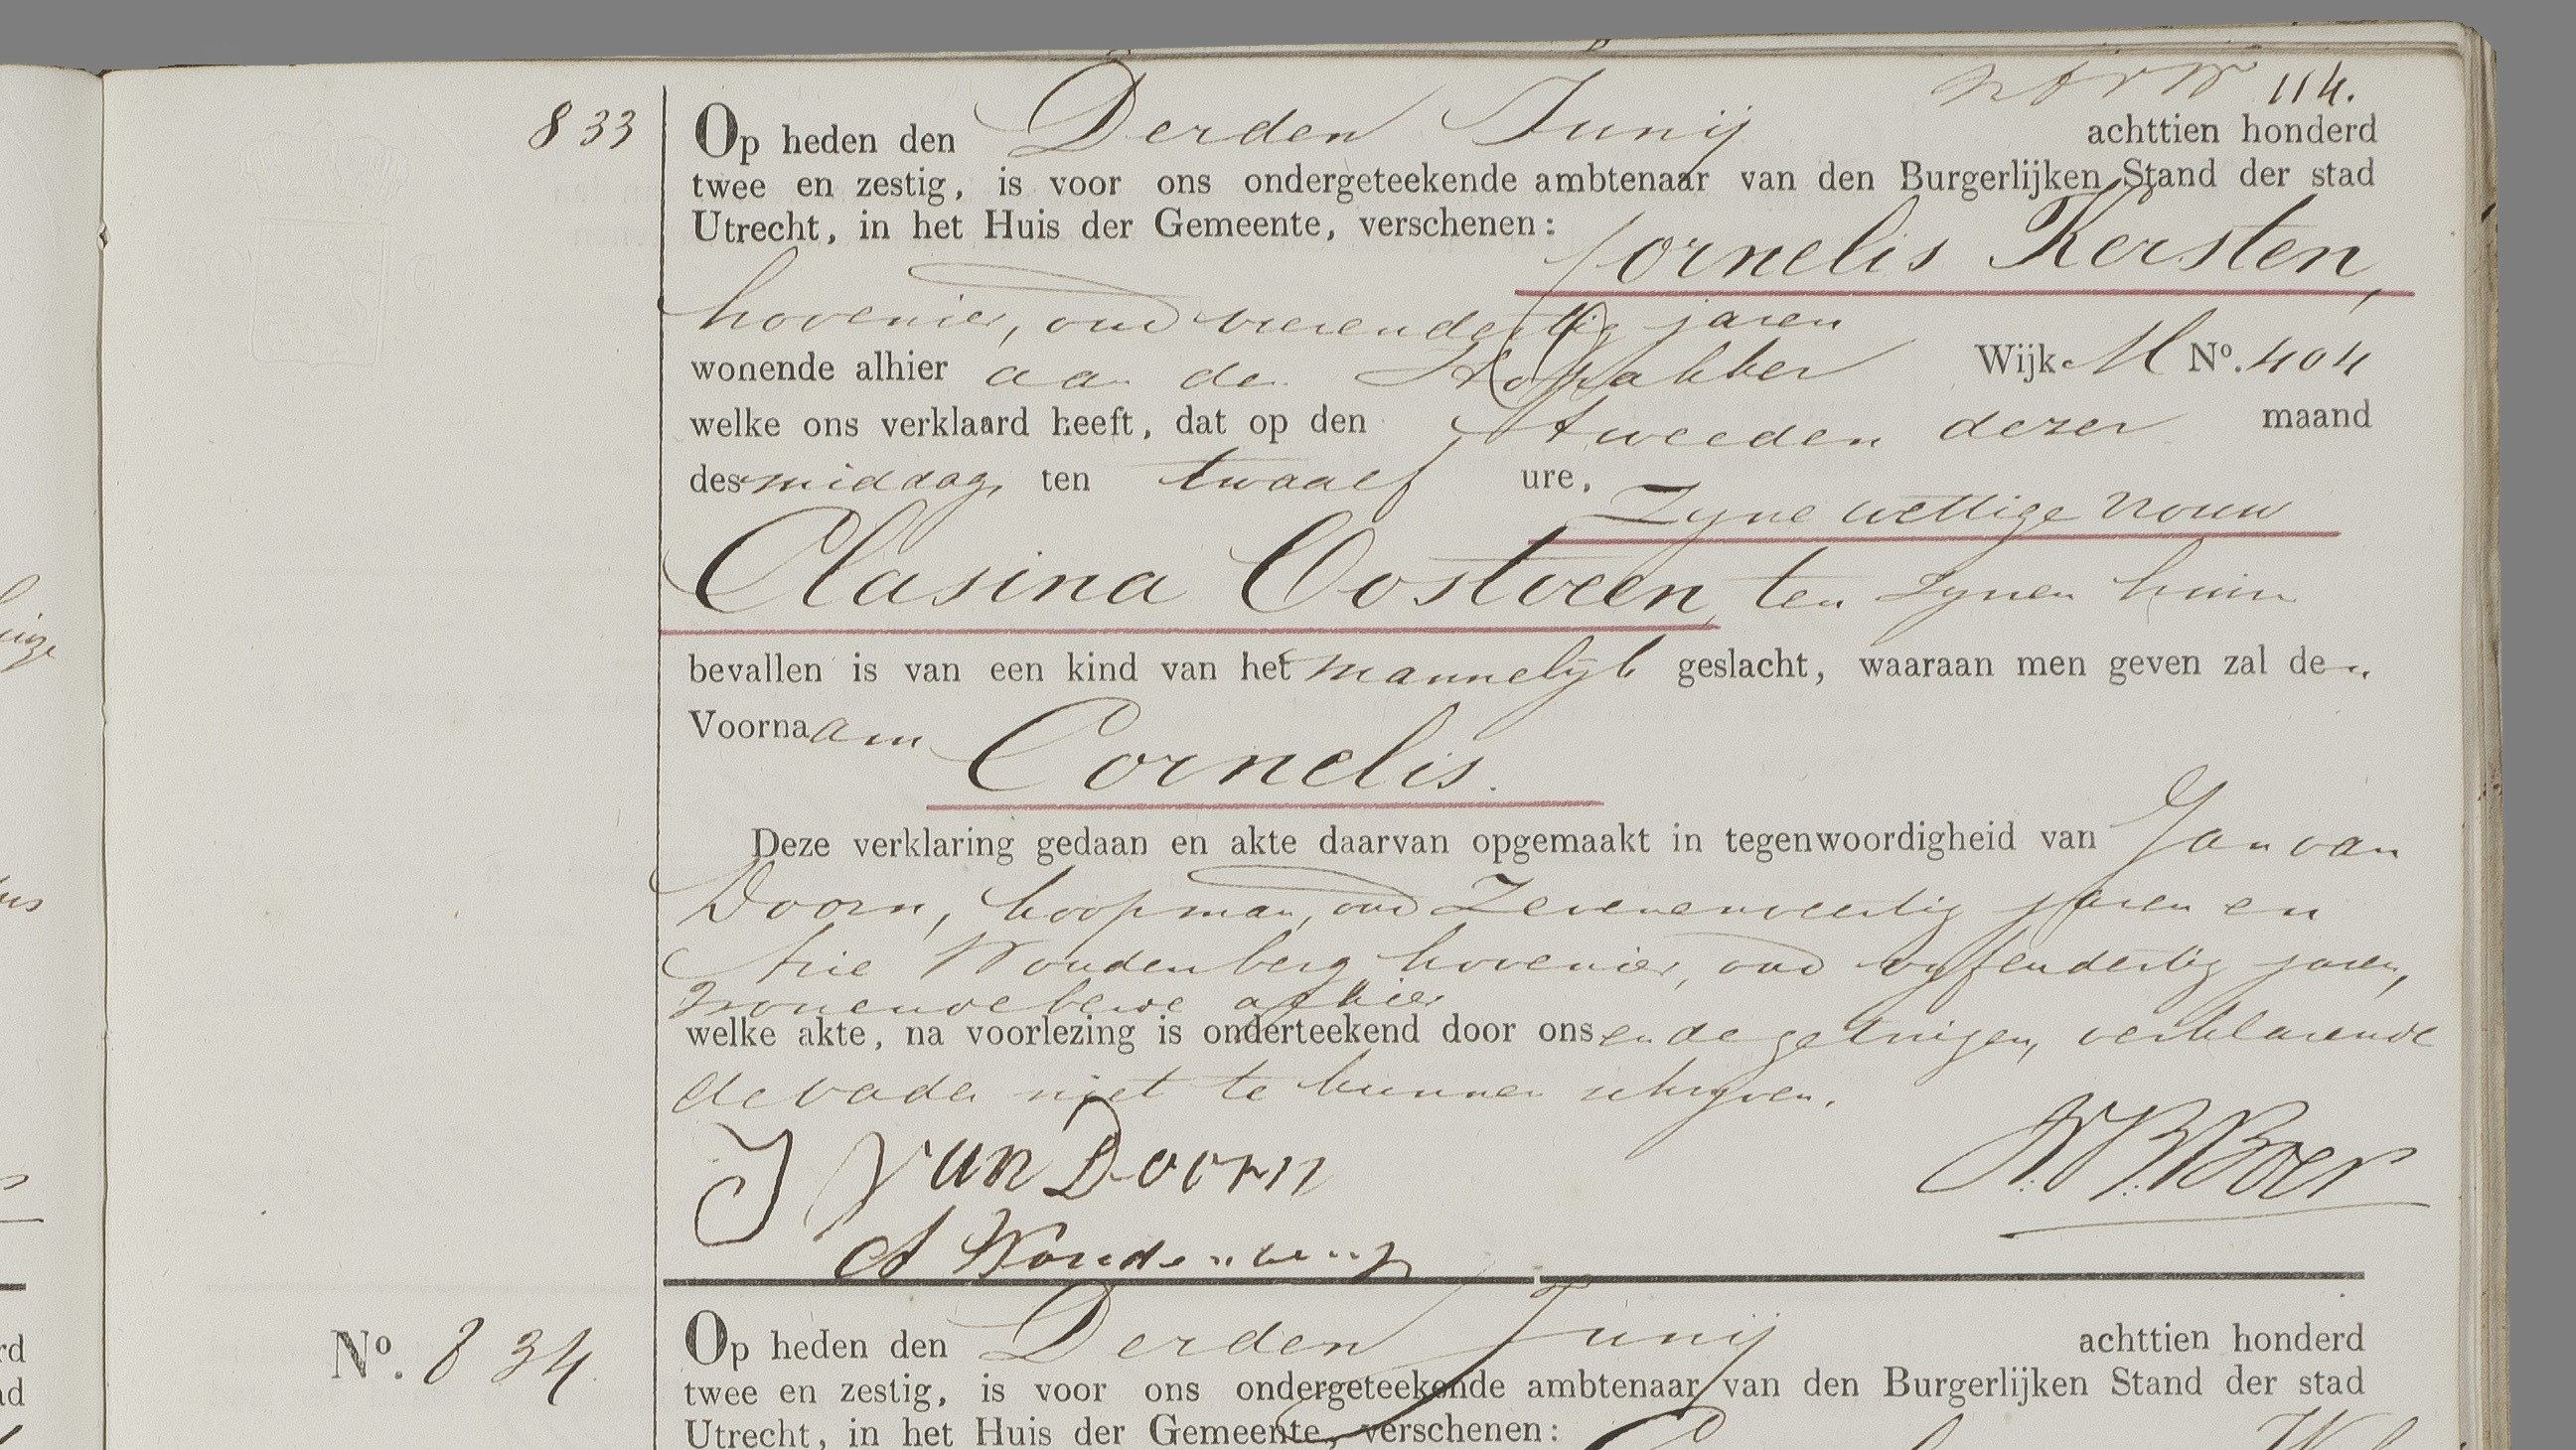 114.
833
Op heden den Derden Junij achttien honderd
twee en zestig, is voor ons ondergeteekende ambtenaar van den Burgerlijken Stand der stad
Utrecht, in het Huis der Gemeente, verschenen: Cornelis Kersten,
hovenier, oud vierendertig jaren
wonende alhier aan de Wijk M No. 404
welke ons verklaard heeft, dat op den tweeden dezer maand
des middags ten twaalf ure, Zyne wettige vrouw
Clasina Oostveen, ten zynen huize
bevallen is van een kind van het mannelyk geslacht, waaraan men geven zal den
Voornaam Cornelis.
Deze verklaring gedaan en akte daarvan opgemaakt in tegenwoordigheid van Jan van
Doorn, koopman, oud Zevenenveertig jaren en
Arie Woudenberg, hovenier, oud vyfendertig jaren,
wonende beide alhier
welke akte, na voorlezing is onderteekend door ons en de getuigen, verklarende
de vader niet te kunnen schryven.
J van Doorn
Boer
A Woudenberg
No. 834
Op heden den Derden Junij achttien honderd
twee en zestig, is voor ons ondergeteekende ambtenaar van den Burgerlijken Stand der stad
Utrecht, in het Huis der Gemeente, verschenen: